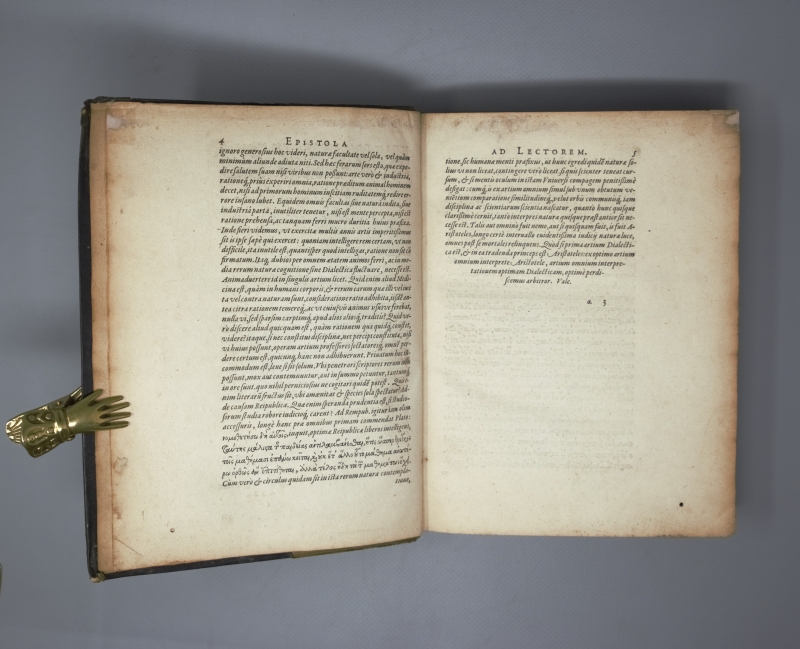 4 EPISTOLA
ignoro generosius hoc videri, naturæ facultate vel sola, vel quàm
minimùm aliunde adiuta niti. Sed hæc ferarum sors esto, quæ expe-
dire salutem suam nisi viribus non possunt: arte verò & industria,
rationéq; prius experiri omnia, ratione præditum animal hominem
decet, nisi ad primorum hominum inscitiam ruditatémq; redire ter-
rore insano lubet. Equidem omnis facultas siue natura indita, siue
industria parta, inutiliter tenetur, nisi est mente percepta, nisi est
ratione prehensa, ac tanquam ferri mucro duritia huius præfixa.
Inde fieri videmus, vt exercitæ multis annis artis imperitissimus
sit is ipse sæpè qui exercet: quoniam intelligere rem certam, vt non
difficile, ita inutile est, quantùm sper quod intelligas, ratione non sit con-
firmatum. Itaq, dubios per omnem ætatem animos ferri, ac in me-
dia rerum naturæ cognitione sine Dialectica fluctuare, necesse est.
Animaduertere id in singulis artium licet. Quid enim aliud Medi-
cina est, quàm in humani corporis, & rerum earum quæ illi vel iux-
ta vel contra naturam sunt, consideratione ratio adhibita,
ta citra rationem temeréq;, ac vt cuiusuis animus
nulla vi, sed sparsim carptimq; apud alios aliosq; traditis? Quid ve-
rò discere aliud quicquam est, quàm rationem qua quidq; constet,
videre? itaque, si nec constitui disciplinæ, nec percepi constitutæ, nisi
vi huius possunt, operam artium professores sectatoresq; omnes per-
dere certum est, quicunq; hanc non adhibuerunt. Priuatum hoc in-
commodum est, leue si sit solum. Vbi penetrari scriptores rerum isti non
possunt, mox aut contemnuntur, aut in summo petuntur, tantumq;
in ore sunt. quo nihil perniciosius ne cogitari quidem potest. Quis e-
nim literarum fructus sit, vbi amœnitas & species sola spectatur? Ad-
de causam Reipublicæ. Quæ enim speranda prudentia est, si studio-
sorum studia robore iudicioq; carent? Ad Rempub. igitur cum olim
accesseris, longè hanc præ omnibus primam commendat Plato:
inquit, optimæ Reipublicæ liberos intelligens,
Cùm verò & circulus quidam sit in ista rerum natura contempla-
tione,
AD LECTOREM. 5
tione, sic humanæ menti præfixus, vt hunc egredi quidem naturæ so-
lius vi non liceat, contingere verò liceat, si quis scienter teneat cur-
sum, & si mentis oculum in istam Vniuersi compagem penitissimè
defigat: cumq; ex artium omnium simul sub vnum obtutum ve-
nientium comparatione similitudinéq;, velut orbis communiúq; iam
disciplina ac scientiarum scientia nascatur, quantò hunc quisque
clarissimè cernit, tantò interpres naturæ quisque præstantior sit ne-
cesse est. Talis aut omnino fuit nemo, aut si quisquam fuit, is fuit A-
ristoteles, longo certè interuallo euidentissima iudicij naturæ luce,
omnes post se mortales relinquens. Quòd si prima artium Dialecti-
ca est, & in ea tradenda princeps est Aristoteles: ex optimo artium
omnium interprete, Aristotele, artium omnium interpre-
tationem optimam Dialecticam, optimè perdi-
scemus arbitror. Vale.
a 3